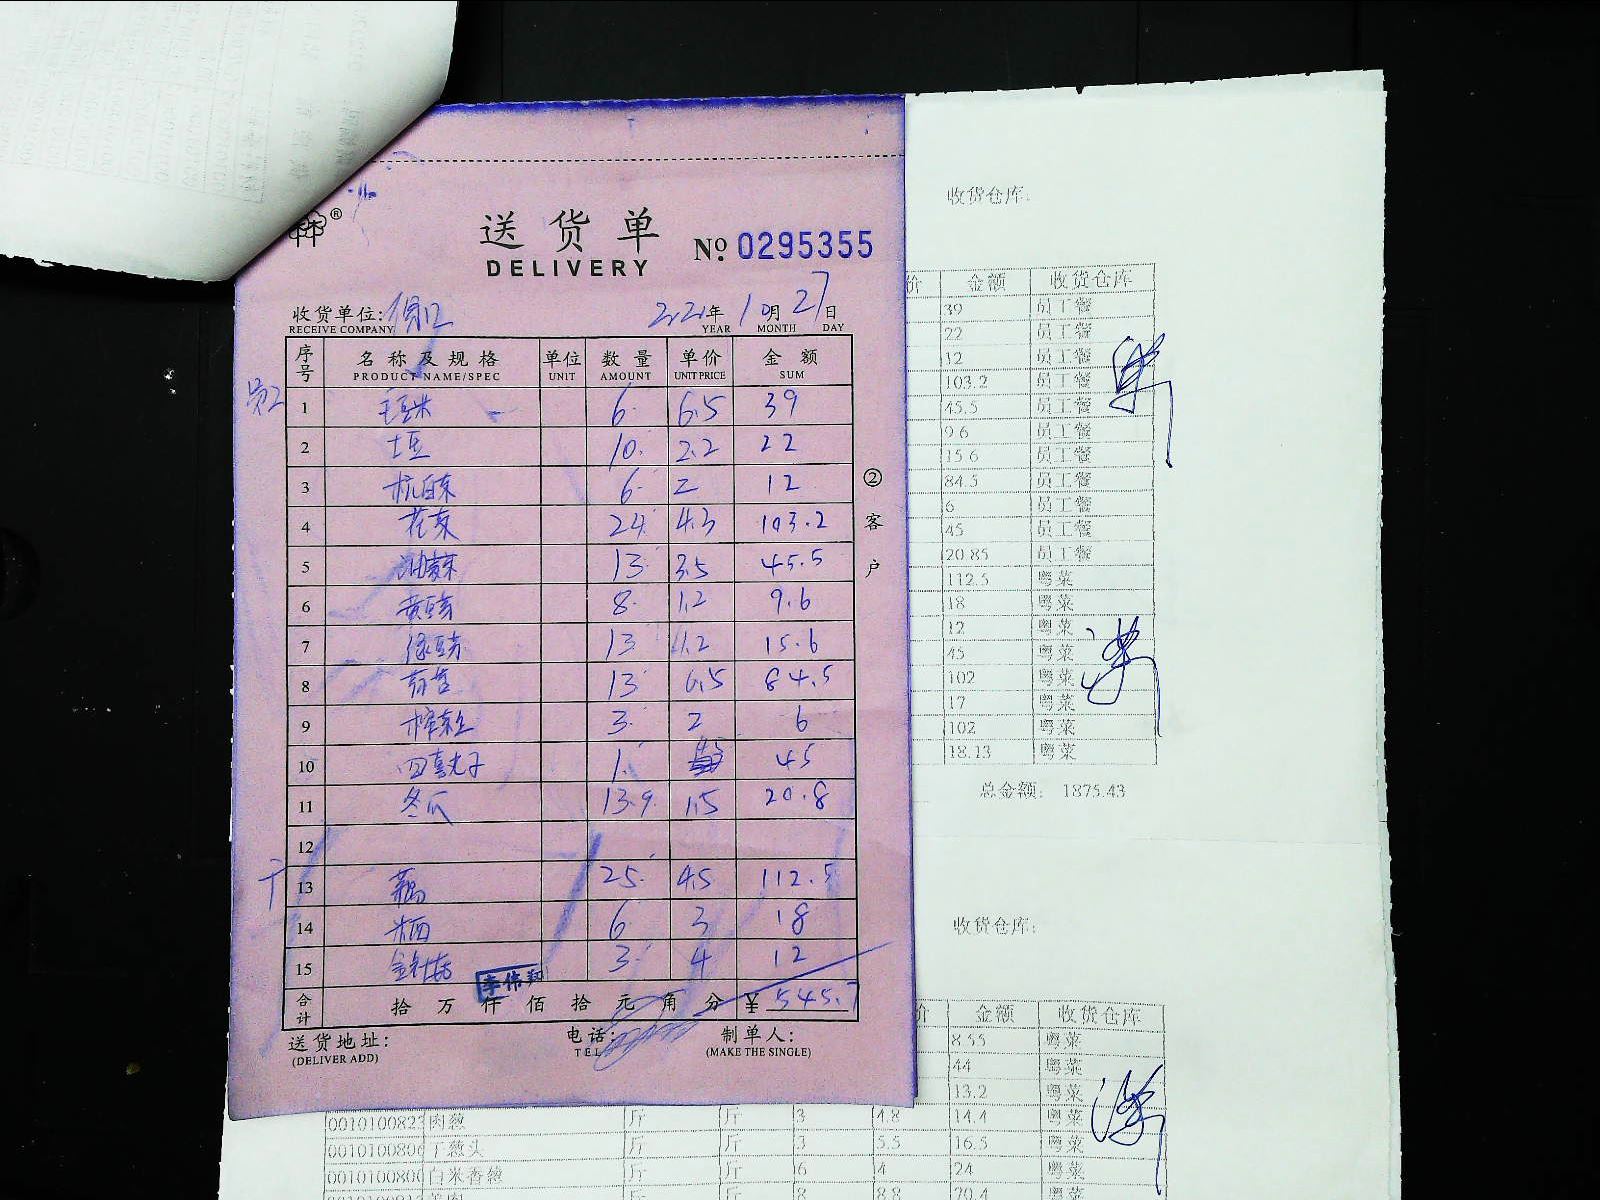 送货单
DELIVERY
№ 0295355
收货单位:
RECEIVE COMPANY
年 10月 27日
YEAR MONTH DAY
序号 名称及规格 单位 数量 单价 金额
PRODUCT NAME/SPEC UNIT AMOUNT UNIT PRICE SUM
员工
1 毛豆米 6 6.5 39
2 土豆 10 2.2 22
3 杭白菜 6 2 12
4 花菜 24 4.3 103.2
5 油麦菜 13 3.5 45.5
6 黄豆芽 8 1.2 9.6
7 绿豆芽 13 1.2 15.6
8 13 6.5 84.5
9 榨菜丝 3 2 6
10 四喜丸子 1 45
11 冬瓜 13.9 1.5 20.8
12
13 25 4.5 112.5
14 6 3 18
15 金针菇 3 4 12
李伟翔
合计 拾万仟佰拾元角分 ¥ 545.7
送货地址:
(DELIVER ADD)
电话:
TEL
制单人:
(MAKE THE SINGLE)
②客户
收货仓库:
价 金额 收货仓库
39 员工餐
22 员工餐
12 员工餐
103.2 员工餐
45.5 员工餐
9.6 员工餐
15.6 员工餐
84.5 员工餐
6 员工餐
45 员工餐
20.85 员工餐
112.5 粤菜
18 粤菜
12 粤菜
45 粤菜
102 粤菜
17 粤菜
102 粤菜
18.13 粤菜
总金额: 1875.43
收货仓库:
价 金额 收货仓库
8.55 粤菜
44 粤菜
13.2 粤菜
001010082 肉葱 斤 斤 3 4.8 14.4 粤菜
001010080 干葱头 斤 斤 3 5.5 16.5 粤菜
001010080 白米香葱 斤 斤 6 4 24 粤菜
斤 斤 8 8.8 70.4 粤菜